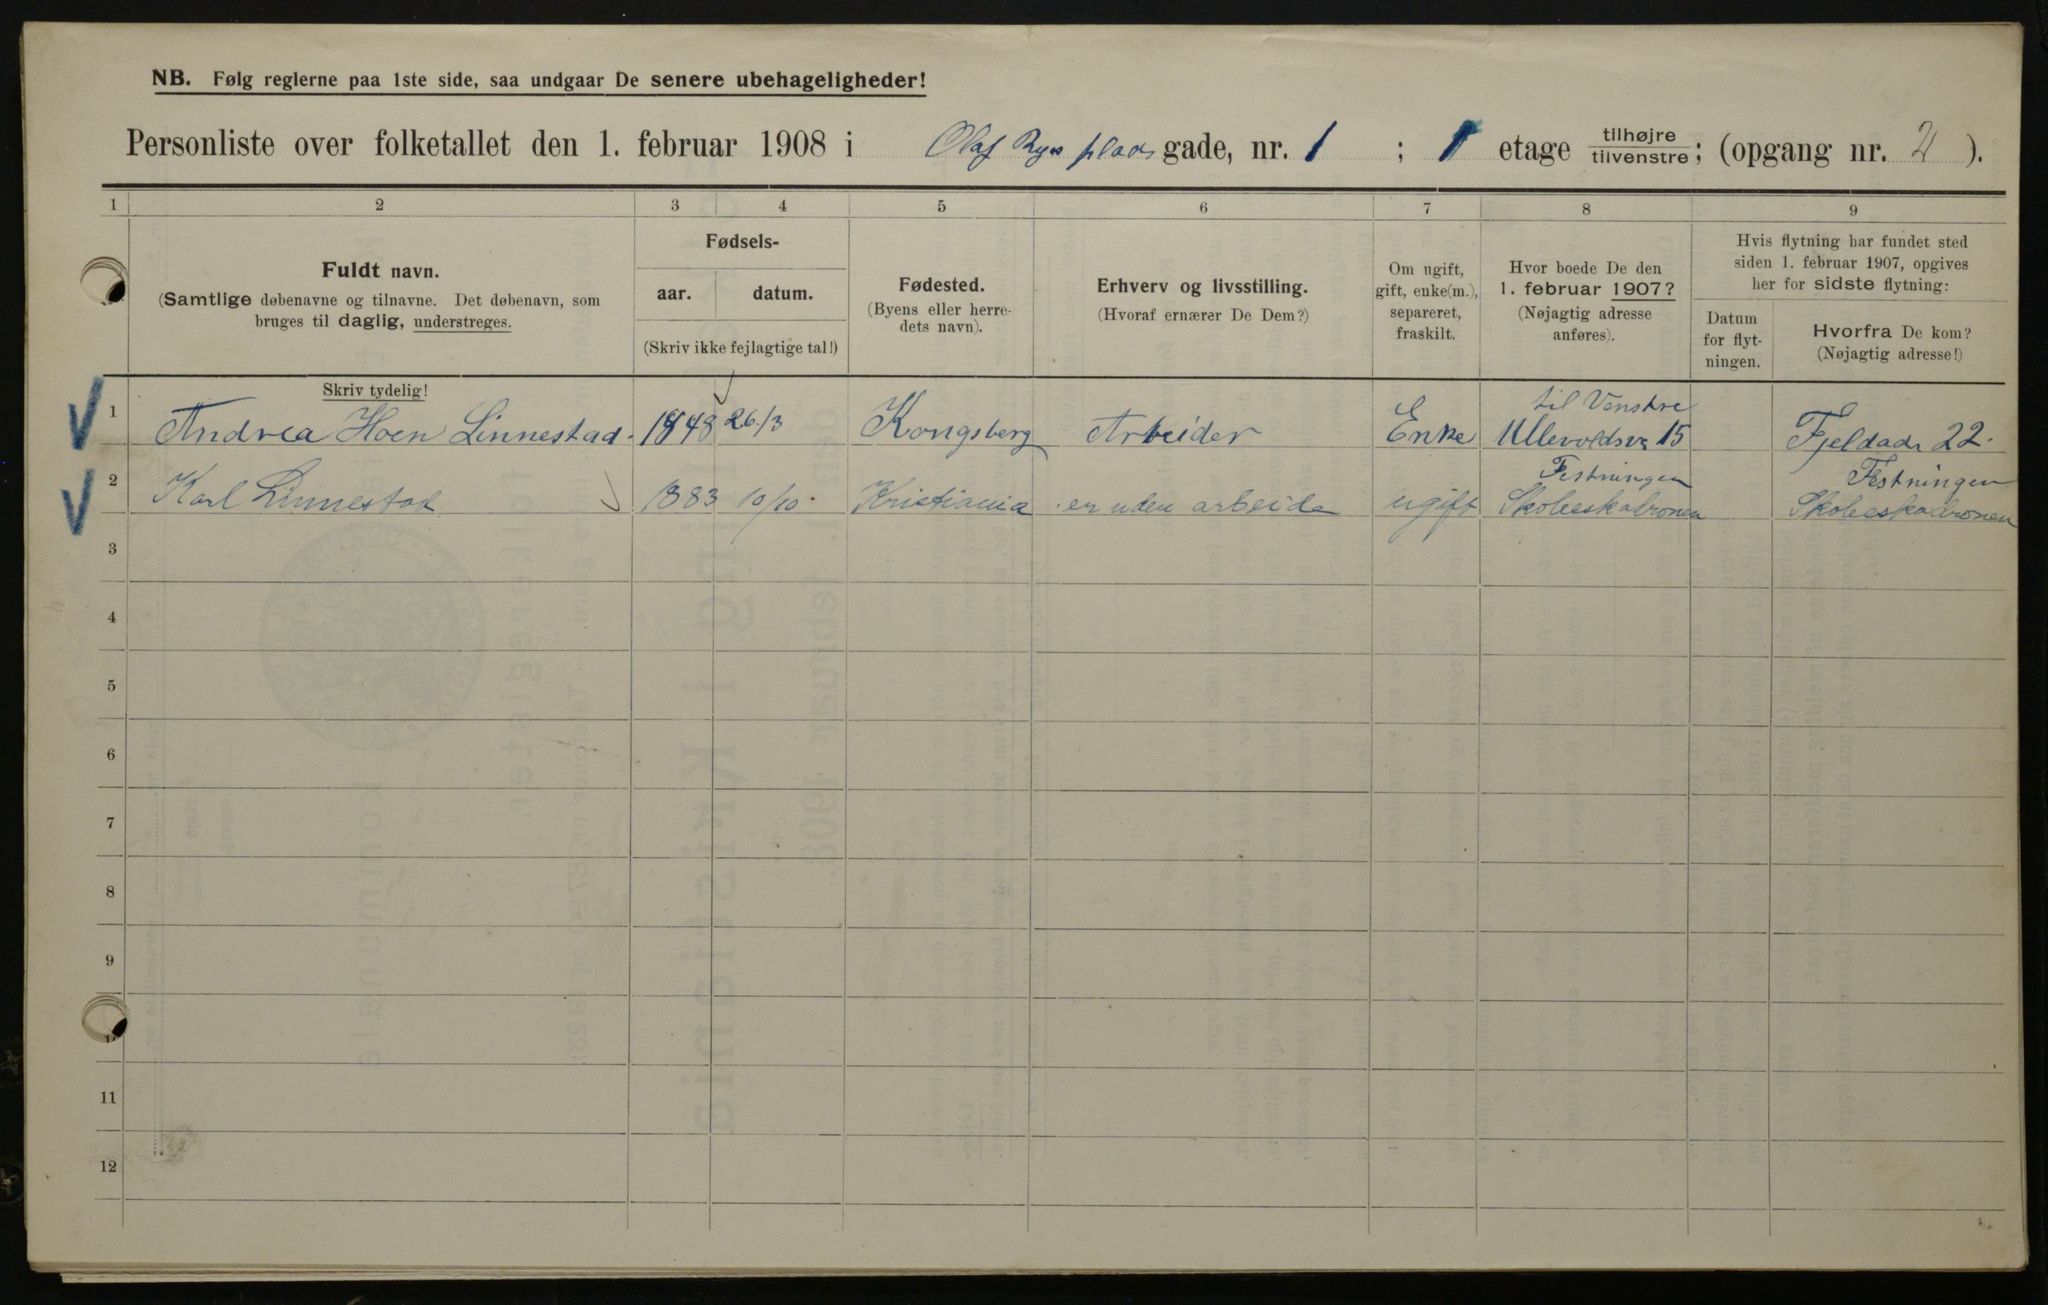 NB. Følg reglerne paa 1ste side, saa undgaar De senere ubehageligheder!
Personliste over folketallet den 1. februar 1908 i Olaf Ryes plads gade, nr. 1 ; 1 etage tilhøjre tilvenstre; (opgang nr. 2 ).
1 2 3 4 5 6 7 8 9
Fuldt navn.
(Samtlige døbenavne og tilnavne. Det døbenavn, som
bruges til daglig, understreges.
Skriv tydelig!
Fødsels-
aar. datum.
(Skriv ikke fejlagtige tal!)
Fødested.
(Byens eller herre-
dets navn).
Erhverv og livsstilling.
(Hvoraf ernærer De Dem?)
Om ugift,
gift, enke(m.),
separeret,
fraskilt.
Hvor boede De den
1. februar 1907?
(Nøjagtig adresse
anføres).
Hvis flytning har fundet sted
siden 1. februar 1907, opgives
her for sidste flytning:
Datum
for flyt-
ningen.
Hvorfra De kom?
(Nøjagtig adresse!)
til Venstre
1 Andrea Hoen Linnestad. 1848 26/3 Kongsberg Arbeider Enke Ullevoldsv. 15 Fjeldgade 22.
Festningen Festningen
2 Karl Linnestad 1883 10/10 Kristiania er uden arbeide ugift Skoleeskadronen Skoleeskadronen
3
4
5
6
7
8
9
10
11
12